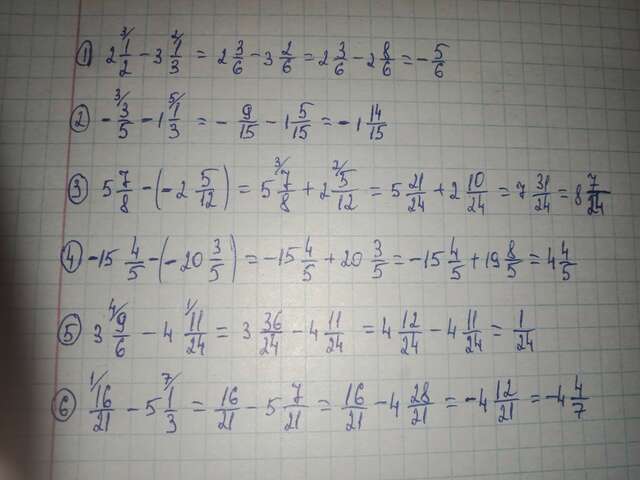 ① 2 ³⁄ 1/2 − 3 ²⁄ 1/3 = 2 3/6 − 3 2/6 = 2 3/6 − 2 8/6 = − 5/6
② − ³⁄ 3/5 − 1 ⁵⁄ 1/3 = − 9/15 − 1 5/15 = − 1 14/15
③ 5 7/8 − (− 2 5/12) = 5 ³⁄ 7/8 + 2 ²⁄ 5/12 = 5 21/24 + 2 10/24 = 7 31/24 = 8 7/24
④ −15 4/5 − (− 20 3/5) = −15 4/5 + 20 3/5 = −15 4/5 + 19 8/5 = 4 4/5
⑤ 3 ⁴⁄ 9/6 − 4 ¹⁄ 11/24 = 3 36/24 − 4 11/24 = 4 12/24 − 4 11/24 = 1/24
⑥ ¹⁄ 16/21 − 5 ⁷⁄ 1/3 = 16/21 − 5 7/21 = 16/21 − 4 28/21 = − 4 12/21 = − 4 4/7